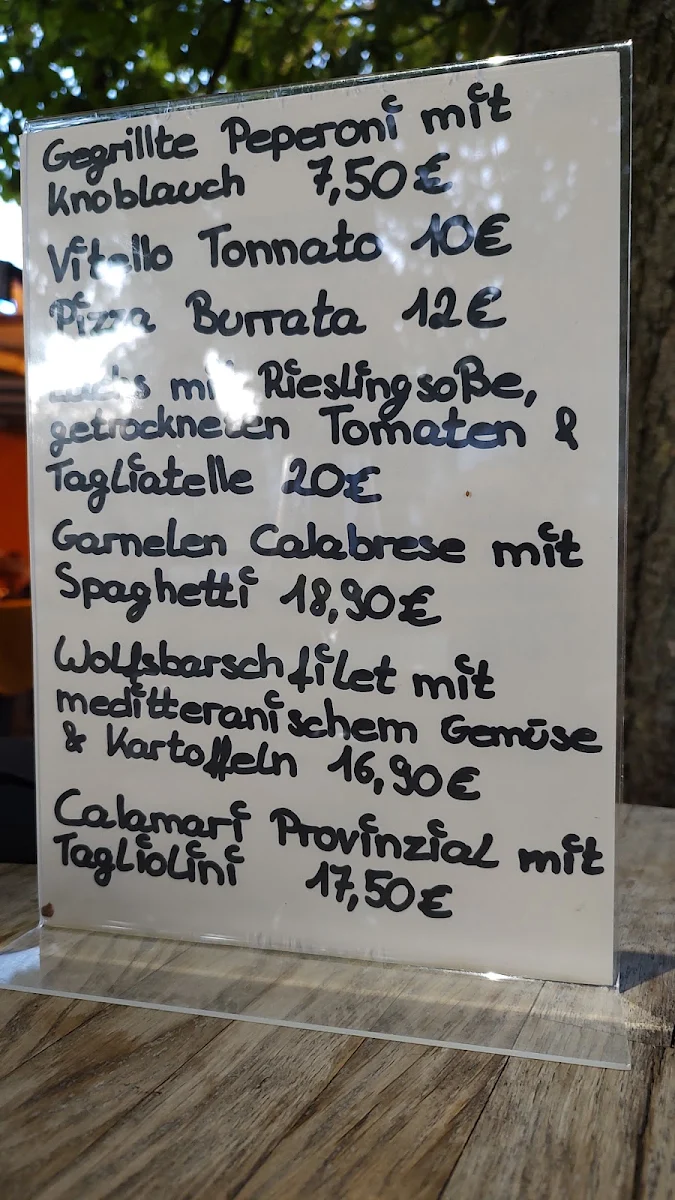 Gegrillte Peperoni mit
Knoblauch 7,50€
Vitello Tonnato 10€
Pizza Burrata 12€
mit Rieslingsoße,
getrockneten Tomaten &
Tagliatelle 20€
Garnelen Calabrese mit
Spaghetti 18,90€
Wolfsbarschfilet mit
meditteranischem Gemüse
& Kartoffeln 16,90€
Calamari Provinzial mit
Tagliolini 17,50€